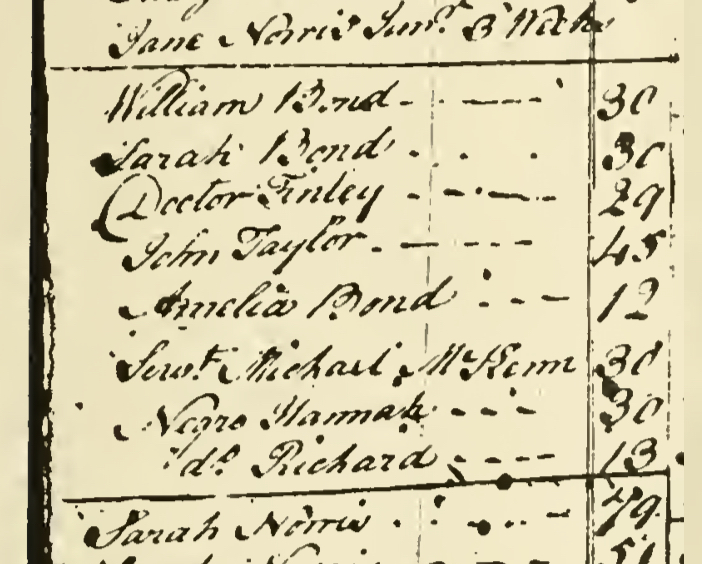 Jane Norris Junr. 3 Weeks
William Bond - - - - 30
Sarah Bond - - - 30
Doctor Finley - - - - 29
John Taylor - - - - 45
Amelia Bond - - - 12
Servt. Michael McKenn 30
Negro Hannah - - - 30
do. Richard - - - - 13
Sarah Norris - - - - 79
51